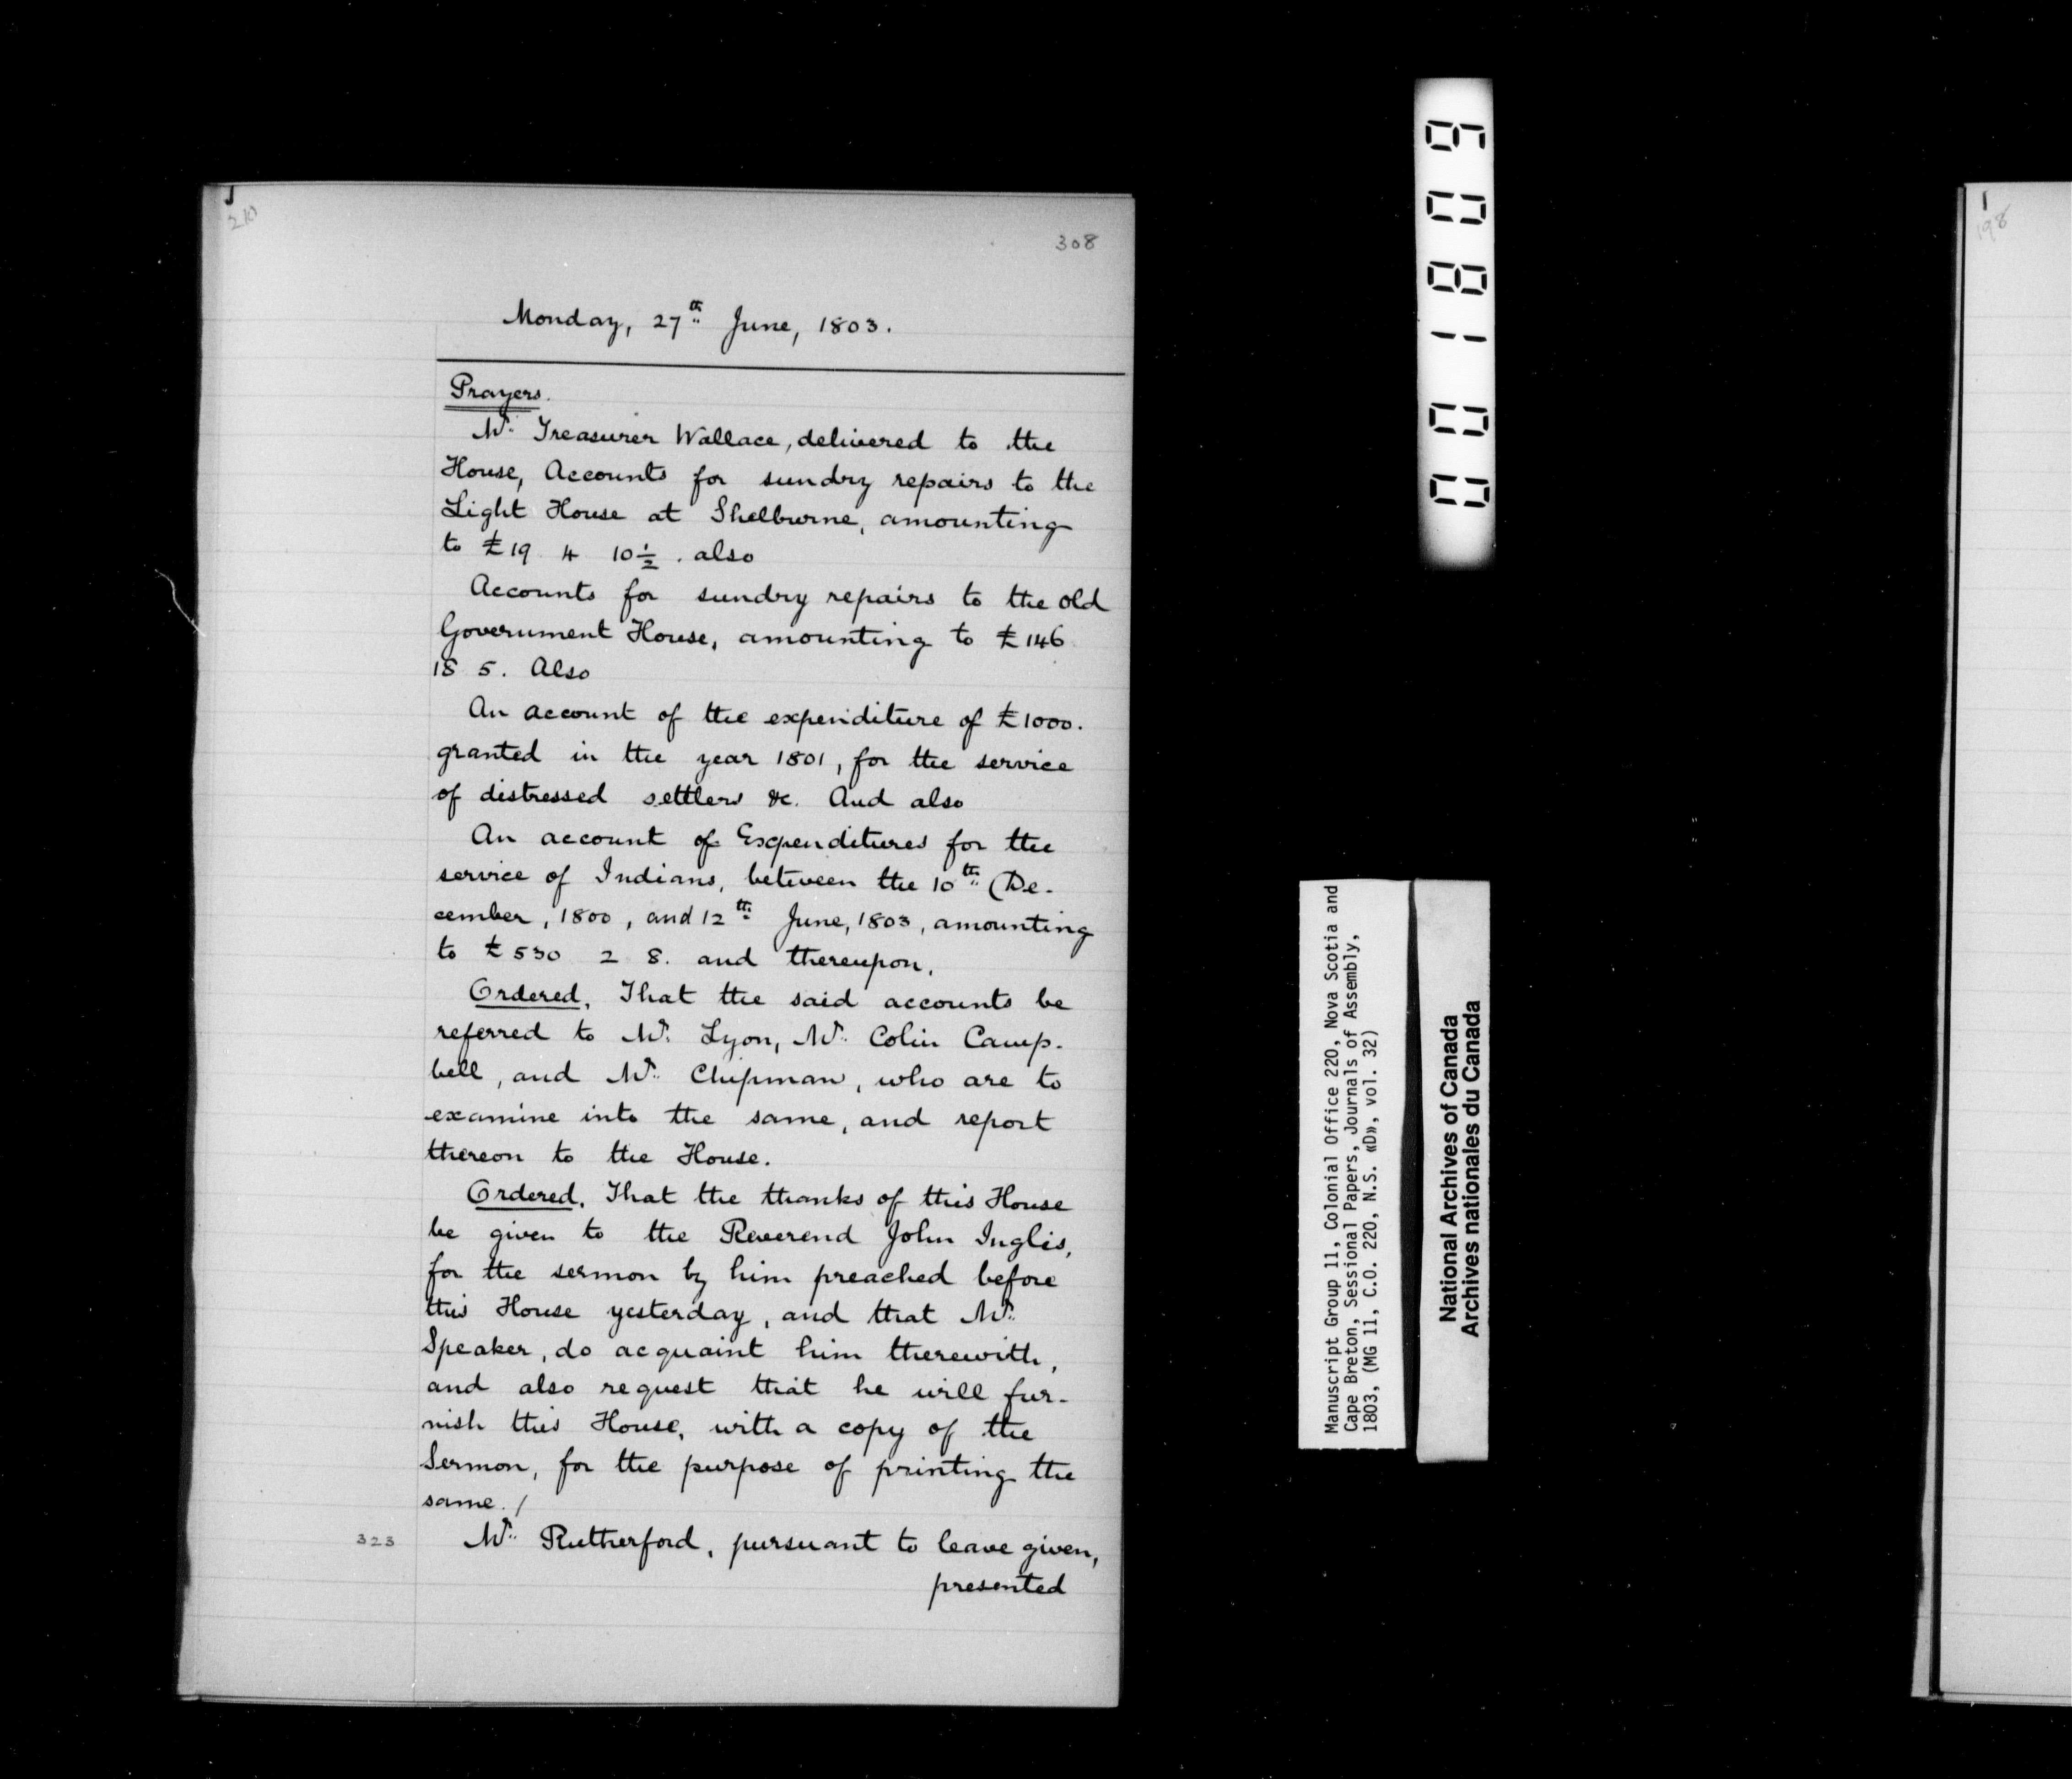 210
308
Monday, 27th June, 1803.
Prayers.
Mr. Treasurer Wallace, delivered to the
House, Accounts for sundry repairs to the
Light House at Shelburne, amounting
to £19 4 10½. also
Accounts for sundry repairs to the old
Government House, amounting to £146
18 5. Also
An account of the expenditure of £1000.
granted in the year 1801, for the service
of distressed settlers &c. And also
An account of Expenditures for the
service of Indians, between the 10th (De-
cember, 1800, and 12th June, 1803, amounting
to £530 2 8. and thereupon,
Ordered, That the said accounts be
referred to Mr. Lyon, Mr. Colin Camp-
bell, and Mr. Chipman, who are to
examine into the same, and report
thereon to the House.
Ordered, That the thanks of this House
be given to the Reverend John Inglis,
for the sermon by him preached before
this House yesterday, and that Mr.
Speaker, do acquaint him therewith,
and also request that he will fur-
nish this House, with a copy of the
Sermon, for the purpose of printing the
same. /
323
Mr. Rutherford, pursuant to leave given,
presented
001809
Manuscript Group 11, Colonial Office 220, Nova Scotia and
Cape Breton, Sessional Papers, Journals of Assembly,
1803, (MG 11, C.O. 220, N.S. «D», vol. 32)
National Archives of Canada
Archives nationales du Canada
198